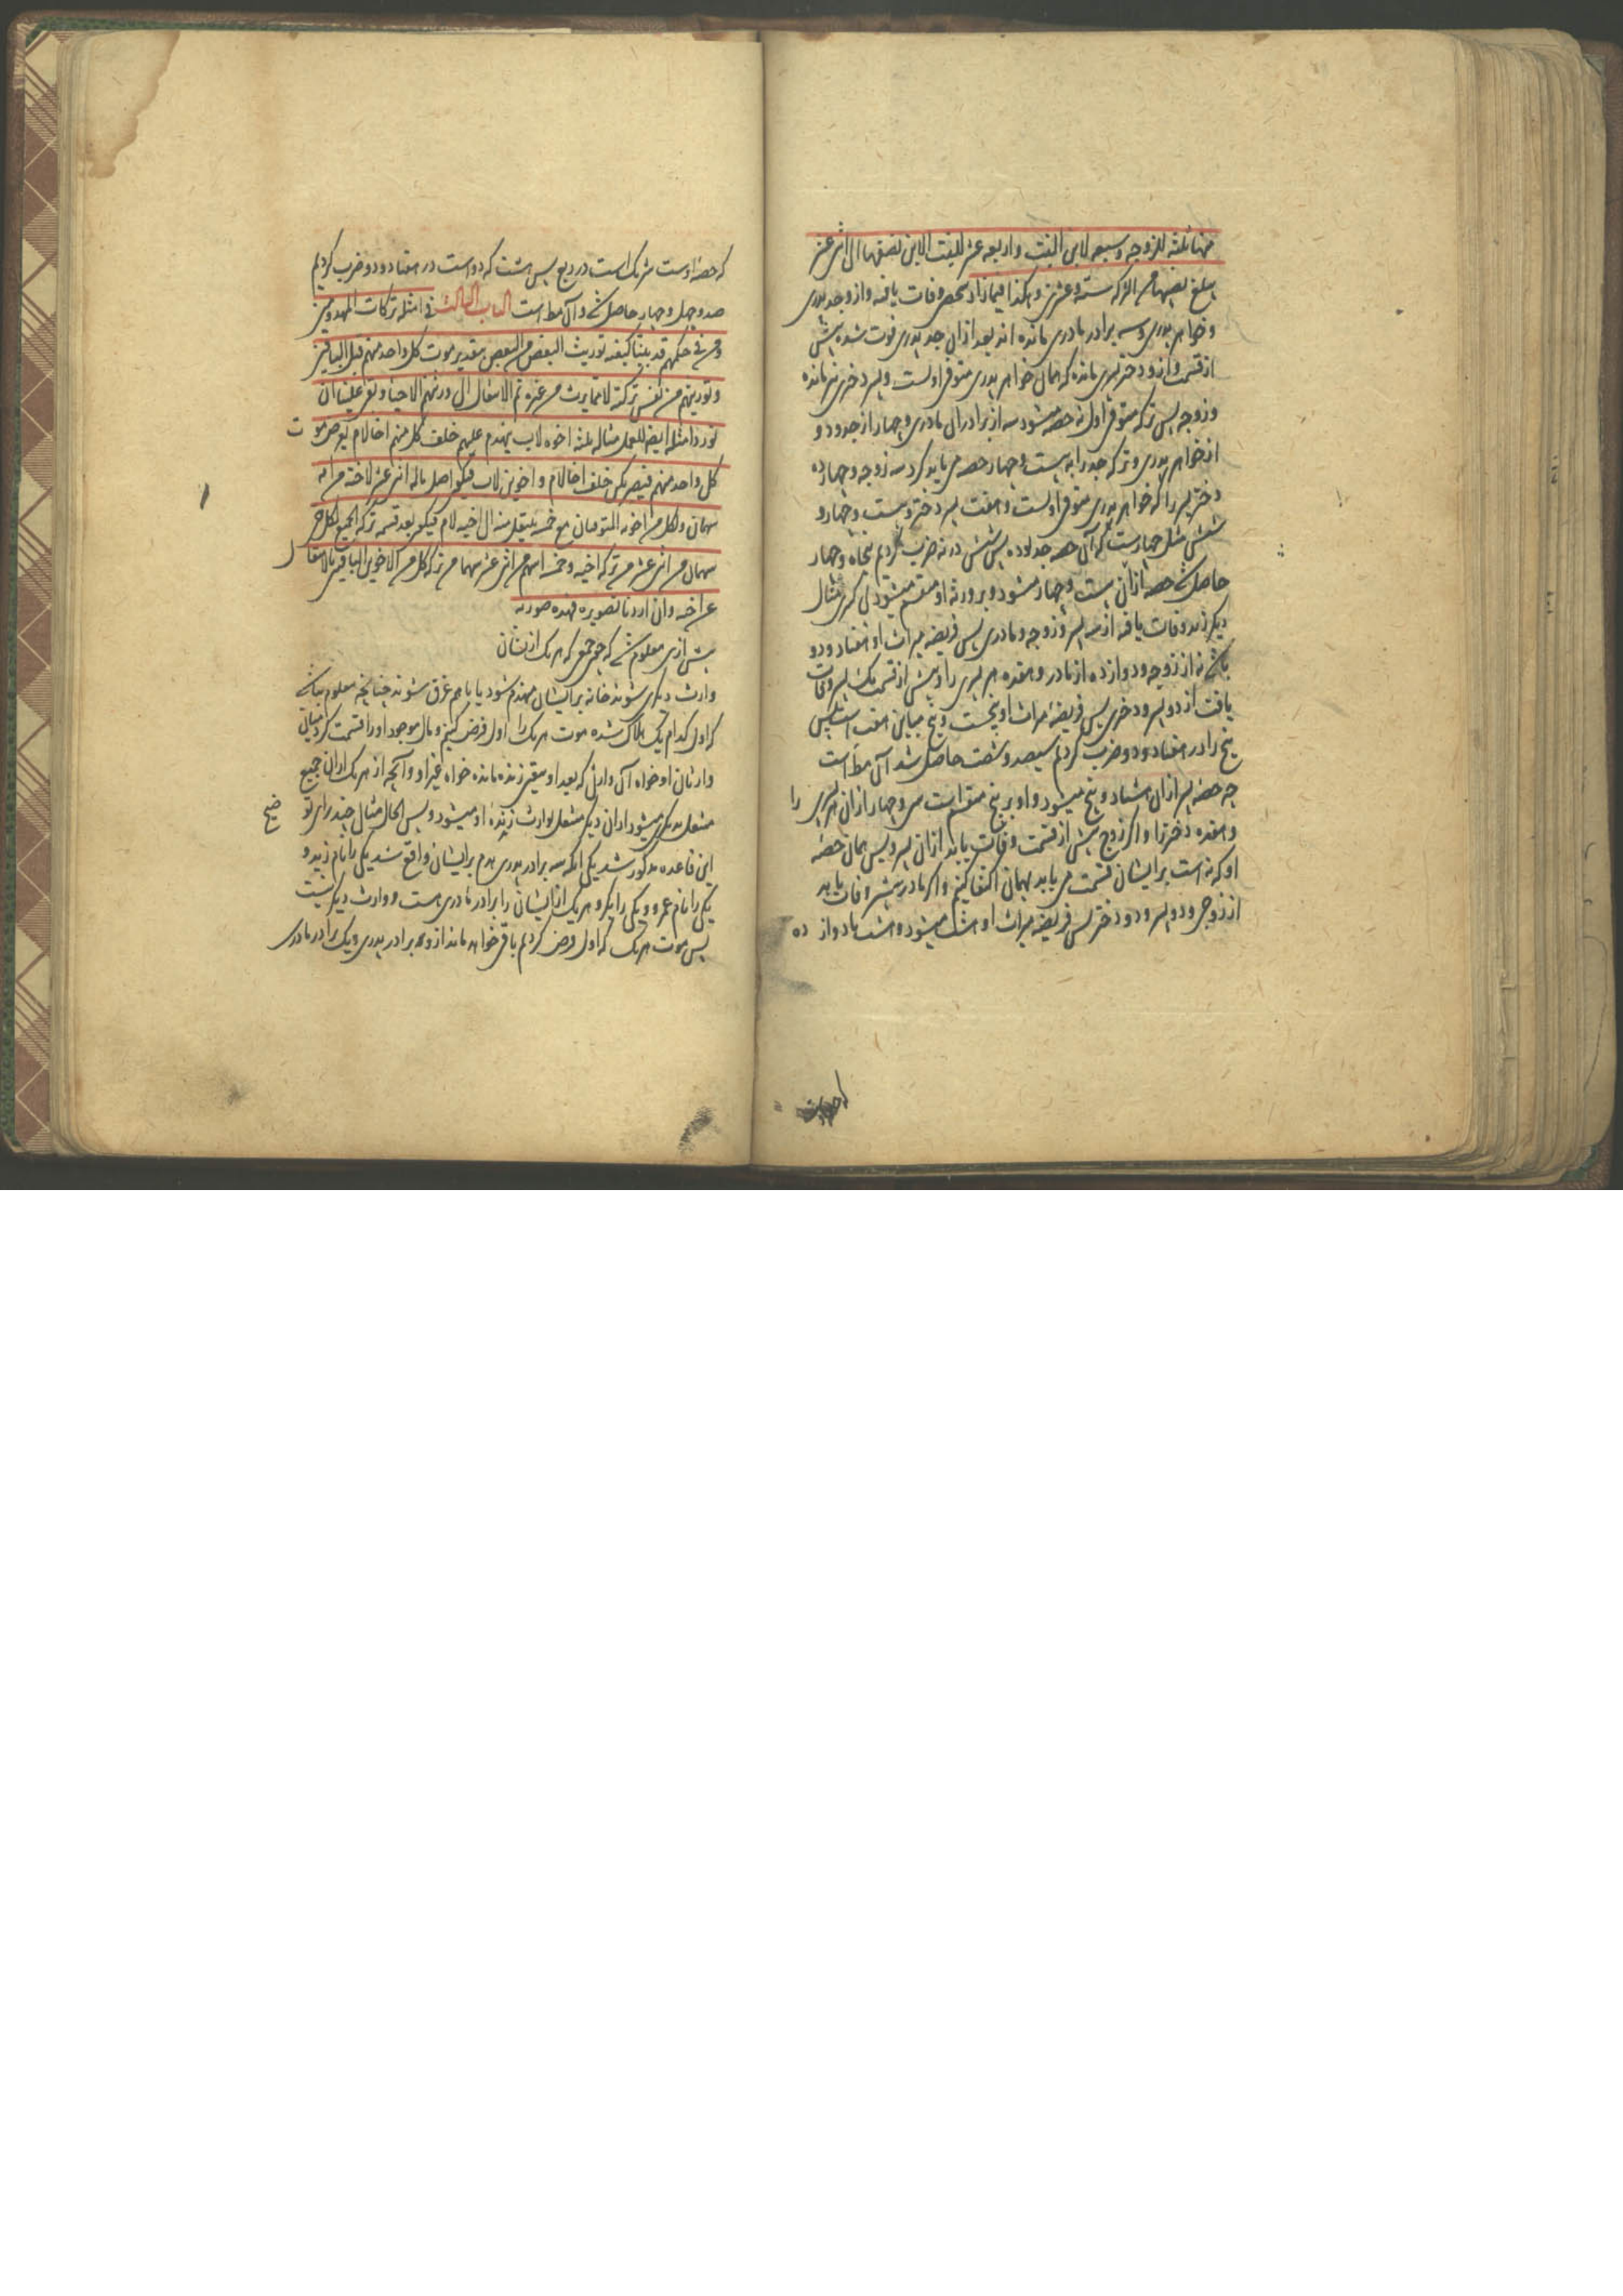 منها ثلثة للزوجه وسبعه لابن البنت واربعه عشر للبنت الابن نصفها الی اثنی عشر
یبلغ نصیبهما من الترکه ستة وعشرین وهکذا فیما زاد شخصی وفات یافته و از وجد پدری
و خواهر پدری و سه برادر مادری مانده اند بعد ازان جد پدری فوت شده پیش
از قسمت و ازو دختر پسری مانده که همان خواهر پدری متوفی اولست و پسر دختری نیز مانده
و زوجه پس ترکه متوفی اول نه حصه میشود سه از برادران مادری و چهار از جد و دو
از خواهر پدری و ترکه جد را به بیست و چهار حصه می باید کرد سه زوجه و چهارده
دختر پسر را که خواهر پدری متوفی اولست و هفت پسر دختر و بیست و چهار و
شش مثل چهارست که آن حصه جد بوده پس شش در نه ضرب کردیم پنجاه و چهار
حاصل شد حصه ازان بیست و چهار میشود و بر ورثه او منقسم میشود بی کسر مثال
دیگر زید وفات یافته از سه پسر و زوجه و مادری پس فریضه میراث او هفتاد و دو
باشد نه از زوجه و دوازده از مادر و هفده هر پسری را و پیش از قسمت یک پسر وفات
یافت از دو پسر و دختری پس فریضهٔ میراث او پنجست و پنج مباین هفده است پس
پنج را در هفتاد و دو ضرب کردیم سیصد و شصت حاصل شد آن مط است
چه حصه پسر ازان هشتاد و پنج میشود و او بر پنج منقسم است سی و چهار ازان هر پسری را
و هفده دختر را و اگر زوج پیش از قسمت وفات یابد ازان پسر و پس همان حصهٔ
او که نه است بر ایشان قسمت می یابد بهمان اکتفا کنیم و اگر مادر پیشتر وفات یابد
از زوج و دو پسر و دو دختر پس فریضه میراث او هشت میشود و هشت با دوازده
که حصهٔ اوست شریک است در ربع پس هشت که دو است در هفتاد و دو ضرب کردیم
صد و چهل و چهار حاصل شد و آن مط است الباب الثالث فی امثله ترکات المهدومین
ومن فی حکمهم قد بینا کیفیه توریث البعض من البعض بتقدیر موت کل واحد منهم قبل الباقین
وتوریثهم من نفس ترکته لا مما یرث من غیره ثم الانتقال الی ورثتهم الاحیاء وبقی علینا ان
نورد امثله ایضا للعمل مثاله ثلثه اخوه لاب ینهدم علیهم خلف کل منهم اخا لام یفرض موت
کل واحد منهم فیصیر کمن خلف اخا لام و اخوین لاب فیکون اصل ماله اثنی عشر لاخیه من امه
سهمان ولکل من اخویه المتوفیان مع خمسه ینتقل منه الی اخیه لام فیکون بعد قسمه ترکه الجمیع لکل حی
سهمان من اثنی عشر من ترکه اخیه وخمسه اسهم من اثنی عشر سهما من ترکه کل من الاخوین الباقیین بالانتقال
عن اخیه وان اردنا تصویره فهذه صورته
پیش ازین معلوم شد که چون جمعی که هر یک از ایشان
وارث دیگری شوند خانه بر ایشان منهدم شود یا باهم غرق شوند چنانچه معلوم نباشد
که اول کدام یک هلاک شده موت هر یک را اول فرض کنیم و مال موجود او را قسمت کردیم میان
وارثان او خواه آن وارثی که بعد او بیقین زنده مانده خواه غیر او و آنچه از هر یک ازان جمیع
منتقل بدیگری میشود ازان دیگر منتقل بوارث زندهٔ او میشود و پس الحال مثال چند برای توضیح
این قاعده مذکور شد یکی آنکه سه برادر پدری هدم بر ایشان واقع شد یکی را نام زید و
یکی را نام عمرو و یکی را بکر و هر یک از ایشان را برادر مادری هست و وارث دیگر نیست
پس موت هر یک که اول فرض کردیم باقی خواهد ماند ازو دو برادر پدری و یک برادر مادری